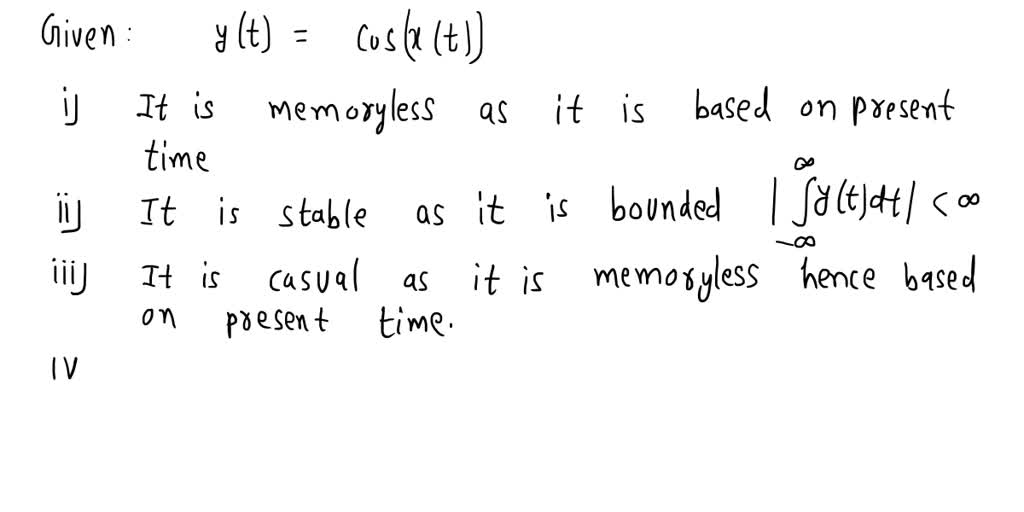 Given: y(t) = cos(x(t))
i) It is memoryless as it is based on present
time
ii) It is stable as it is bounded |∫_{-∞}^{∞} y(t)dt| < ∞
iii) It is casual as it is memoryless hence based
on present time.
IV